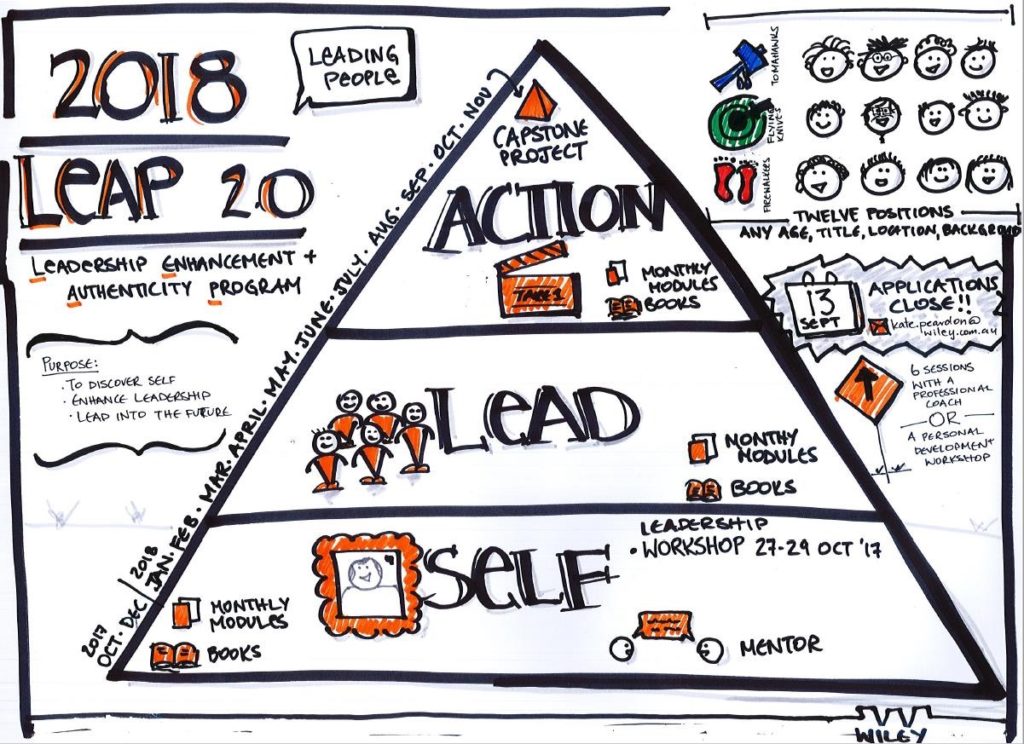 2018
LEAP 2.0
LEADERSHIP ENHANCEMENT +
AUTHENTICITY PROGRAM
PURPOSE:
· TO DISCOVER SELF
· ENHANCE LEADERSHIP
· LEAD INTO THE FUTURE
LEADING
PEOPLE
2017
OCT·DEC
2018
JAN·FEB·MAR·APRIL·MAY·JUNE·JULY·AUG·SEP·OCT·NOV
CAPSTONE
PROJECT
ACTION
TAKE 1
MONTHLY
MODULES
BOOKS
LEAD
MONTHY
MODULES
BOOKS
SELF
LEADERSHIP
· WORKSHOP 27-29 OCT '17
MONTHLY
MODULES
BOOKS
MENTOR
TOMAHAWKS
FLYING
KNIVES
FIREWALKERS
TWELVE POSITIONS
ANY AGE, TITLE, LOCATION, BACKGROUND
13
SEPT
APPLICATIONS
CLOSE!!
kate.peardon@
wiley.com.au
6 SESSIONS
WITH A
PROFESSIONAL
COACH
—OR—
A PERSONAL
DEVELOPMENT
WORKSHOP
WILEY